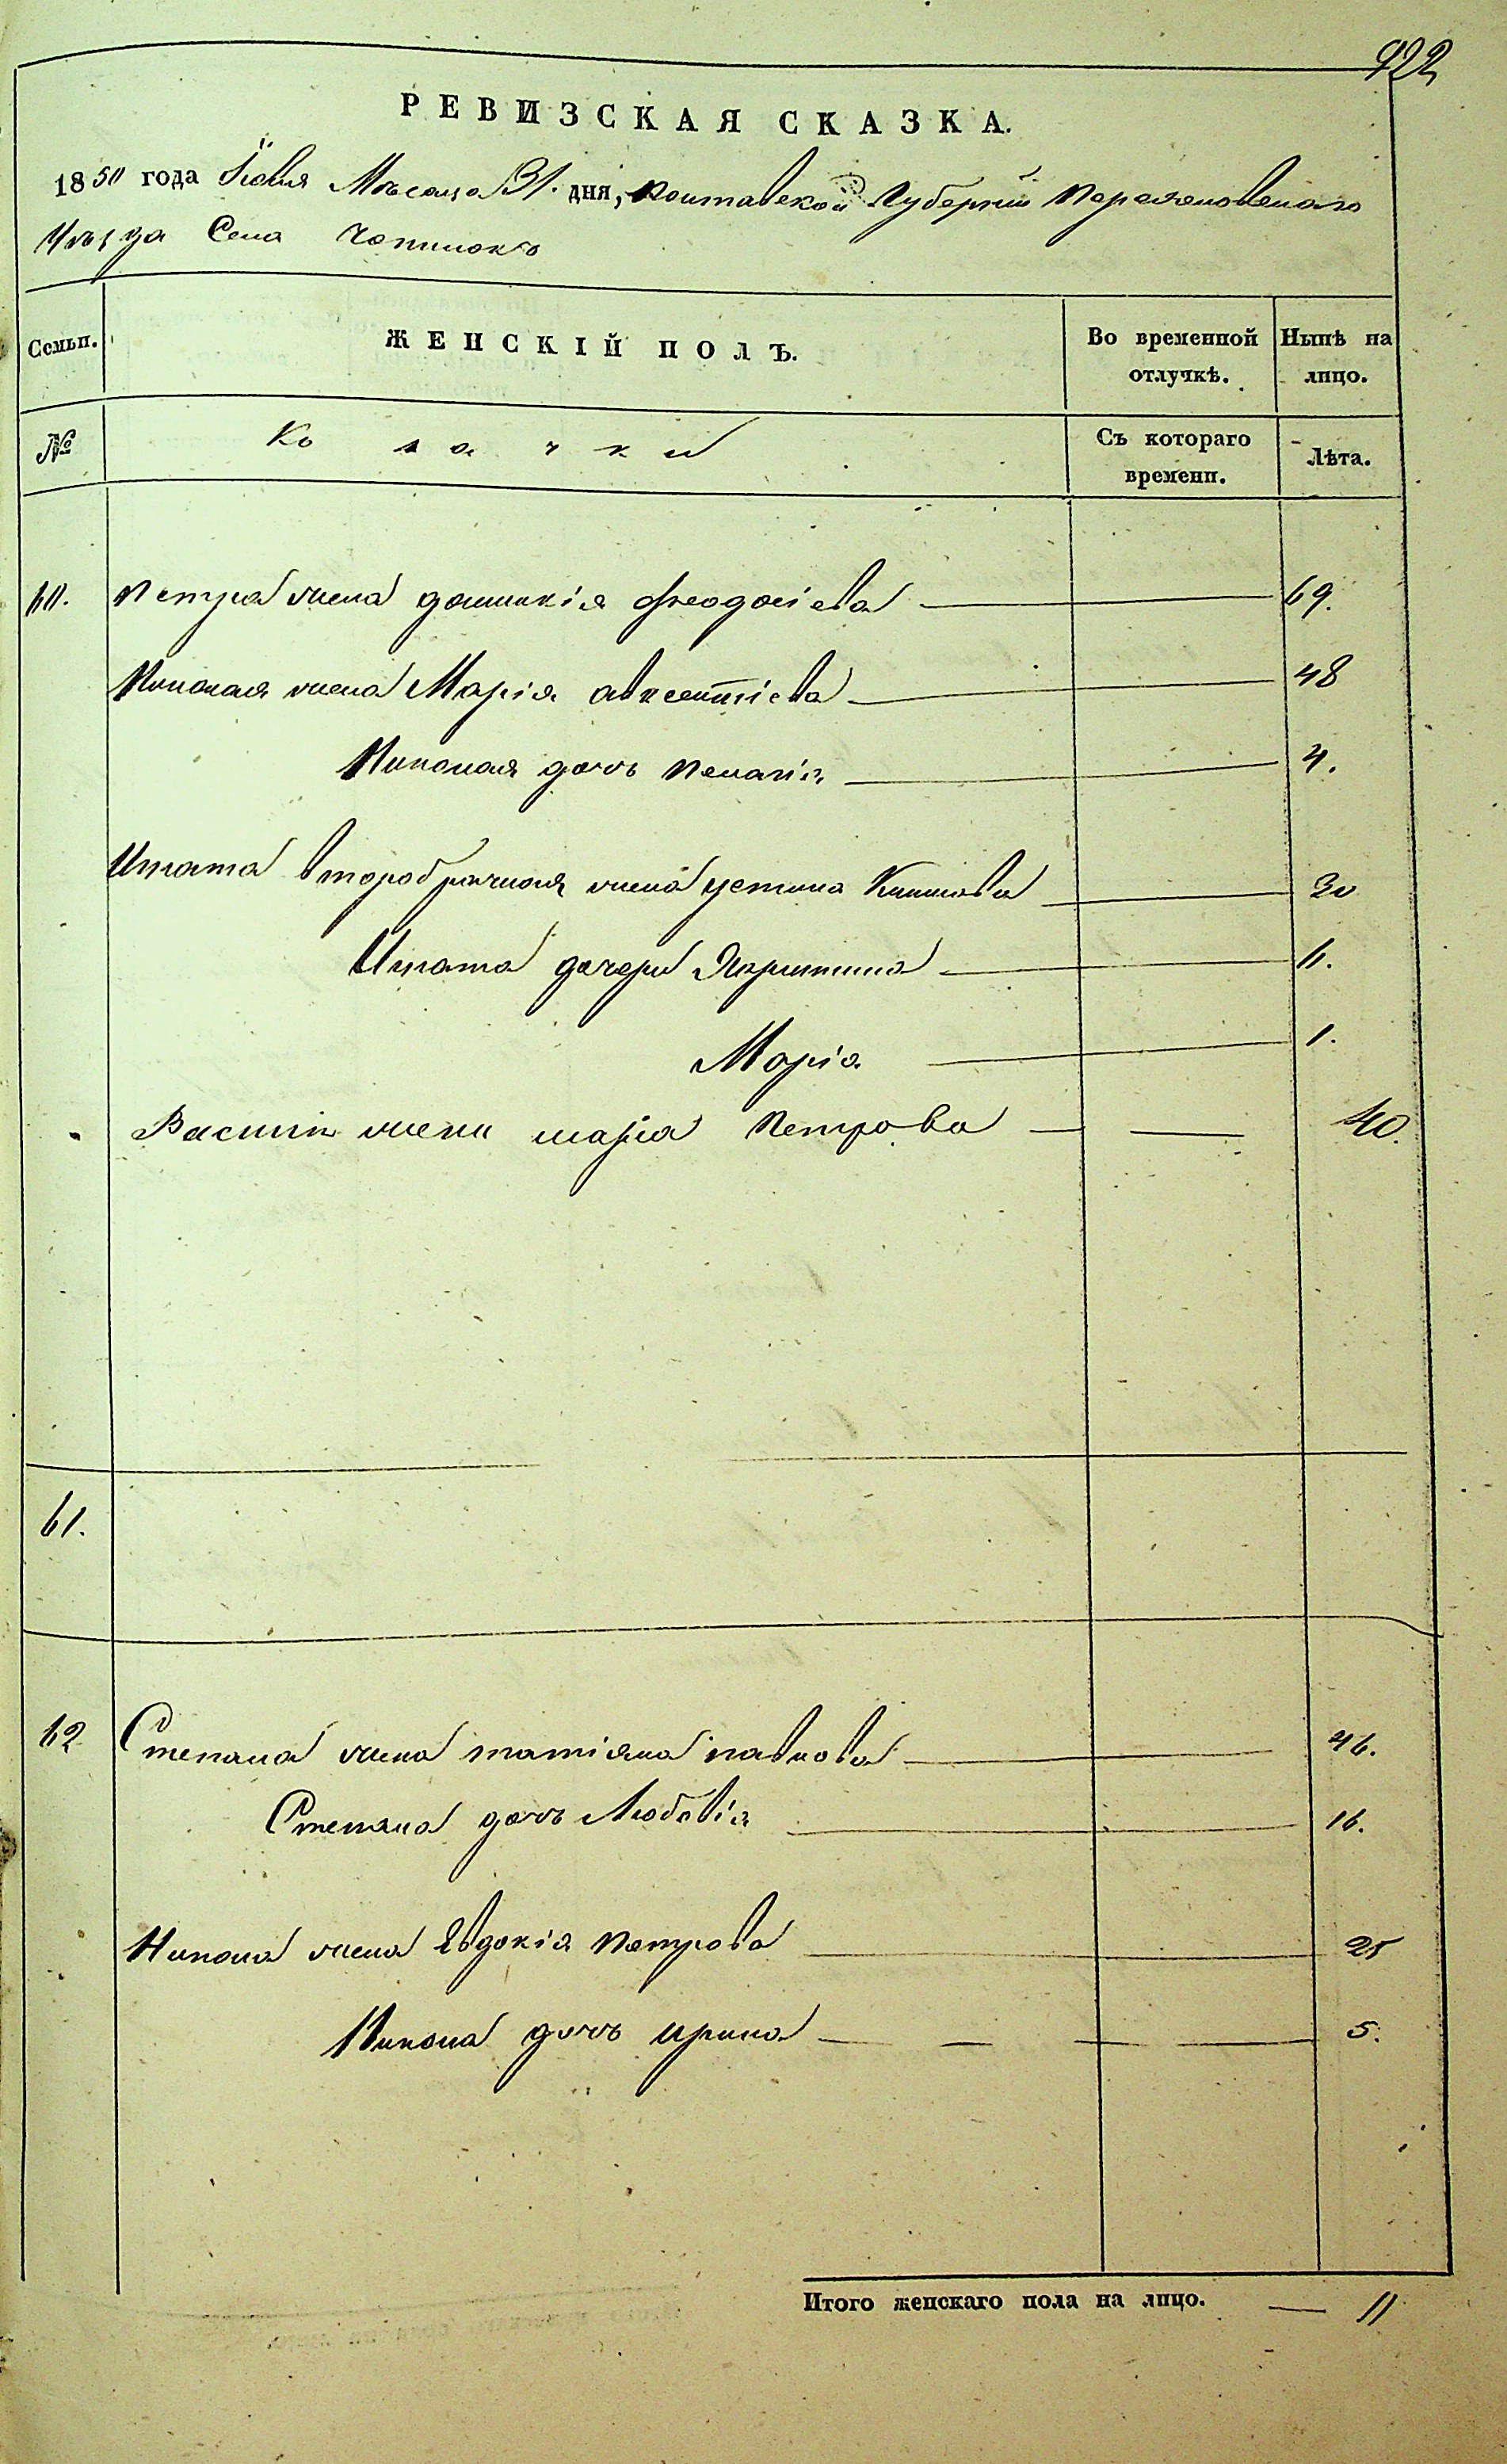 922
РЕВИЗСКАЯ СКАЗКА.
1850 года Іюня Мѣсяца 31. дня, Полтавской Губерніи Переяславскаго
Уѣзда Села Чопилокъ
Семьи. ЖЕНСКІЙ ПОЛЪ. Во временной отлучкѣ. Нынѣ на лицо.
№ Козачки Съ котораго времени. Лѣта.
60. Петра жена Домникія Феодосіева 69.
Николая жена Марія Авксентіева 48
Николая дочь Пелагія 4.
Игната второбрачная жена Устина 30
Игната дочери 6.
Марія 1.
Василія жена Марія Петрова 40.
61.
62 Степана жена Татіяна Павлова 46.
Степана дочь Любовія 16.
Никона жена Евдокія Петрова 25
Никона дочь Ирина 5.
Итого женскаго пола на лицо. — 11